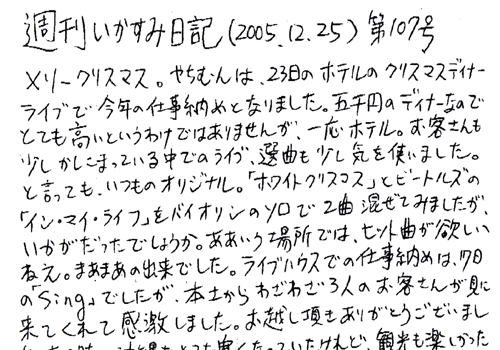 週刊いかすみ日記(2005.12.25) 第107号
メリークリスマス。やちむんは、23日のホテルのクリスマスディナー
ライブで今年の仕事納めとなりました。五千円のディナーなので
とても高いというわけではありませんが、一応ホテル。お客さんも
少しかしこまっている中でのライブ、選曲も少し気を使いました。
と言っても、いつものオリジナル。「ホワイトクリスマス」とビートルズの
「イン・マイ・ライフ」をバイオリンのソロで2曲混ぜてみましたが、
いかがだったでしょうか。ああいう場所では、ヒット曲が欲しい
ねえ。まあまあの出来でした。ライブハウスでの仕事納めは、17日
の「Sing」でしたが、本土からわざわざ3人のお客さんが見に
来てくれて感激しました。お越し頂きありがとうございまし
とても寒くなっていたけれど、観光も楽しかった